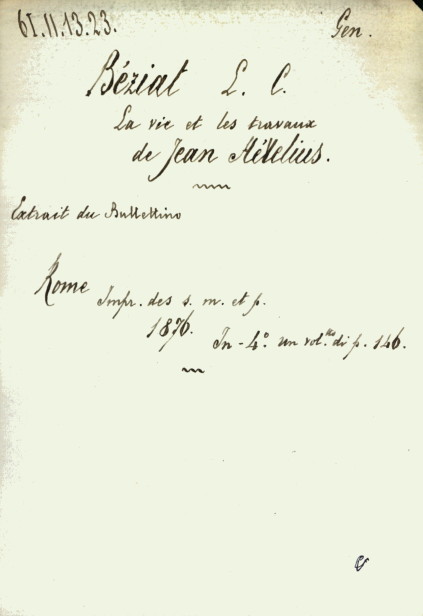 61.11.13.23. Gen.
Béziat L. C.
La vie et les travaux
de Jean Hévelius.
Extrait du Bullettino
Rome Impr. des s. m. et p.
1876.
In-4° un vol.tto di p. 146.